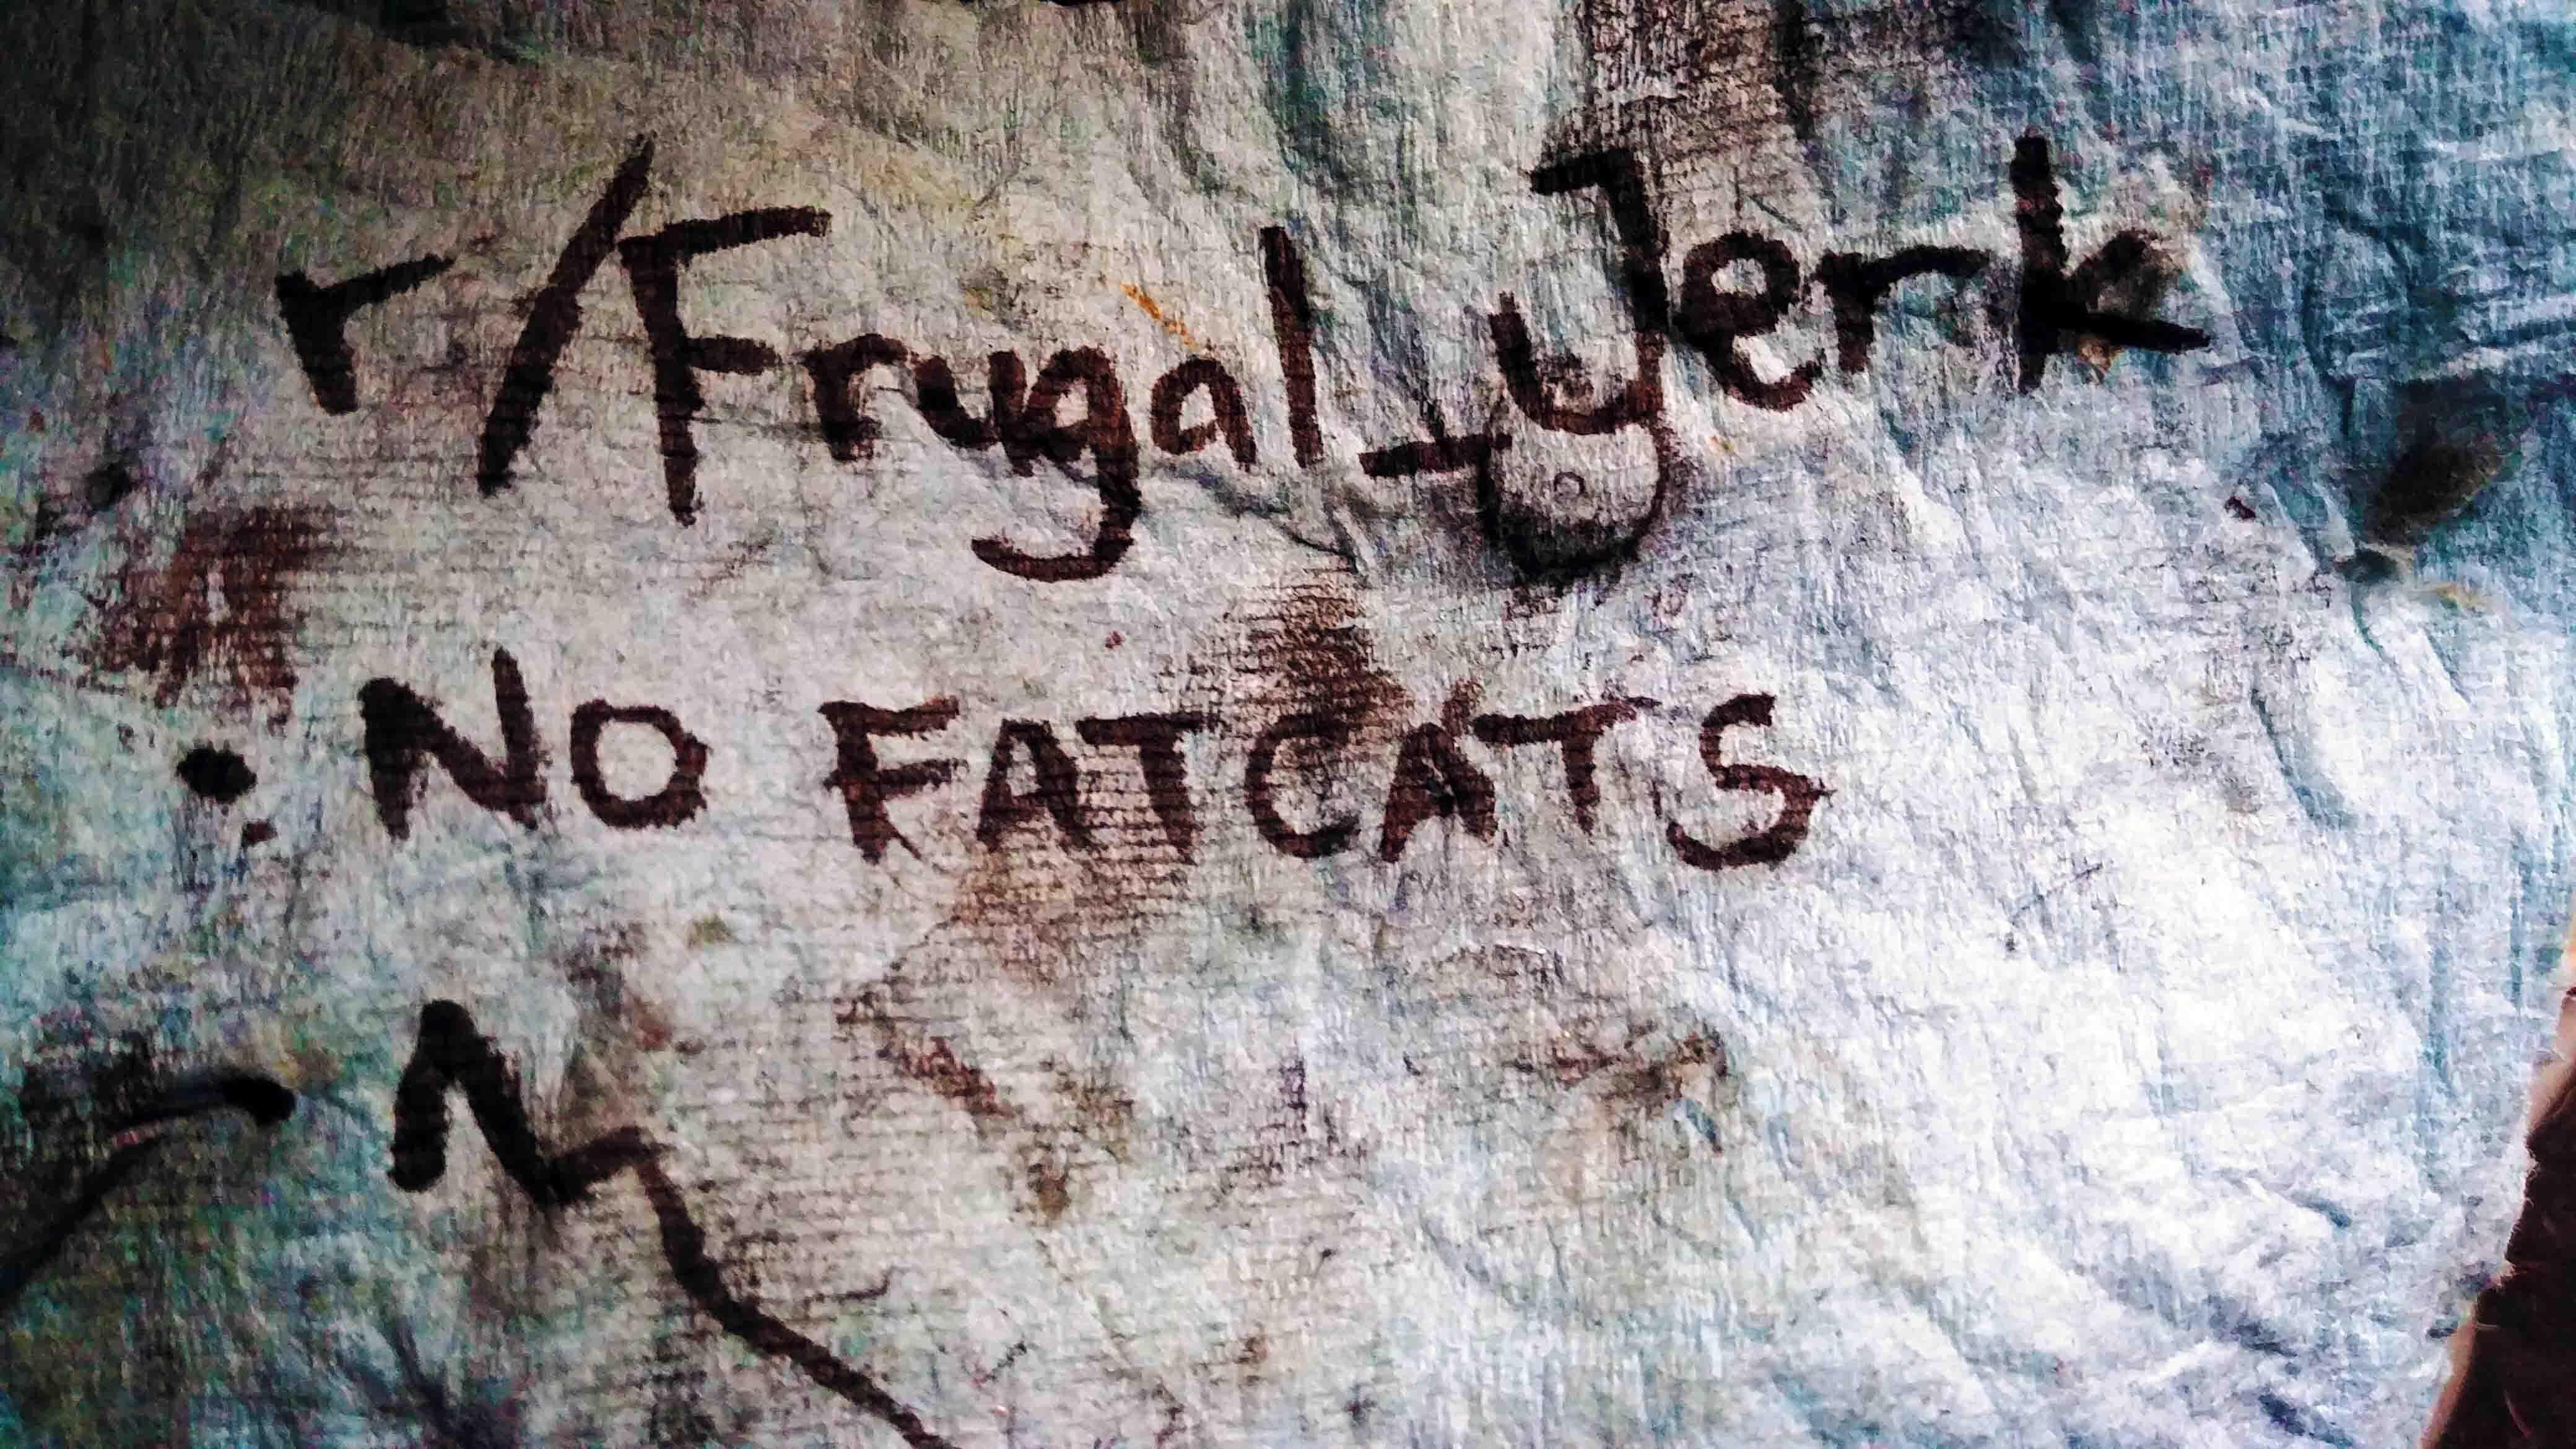 r/Frugal_Jerk
• NO FATCATS